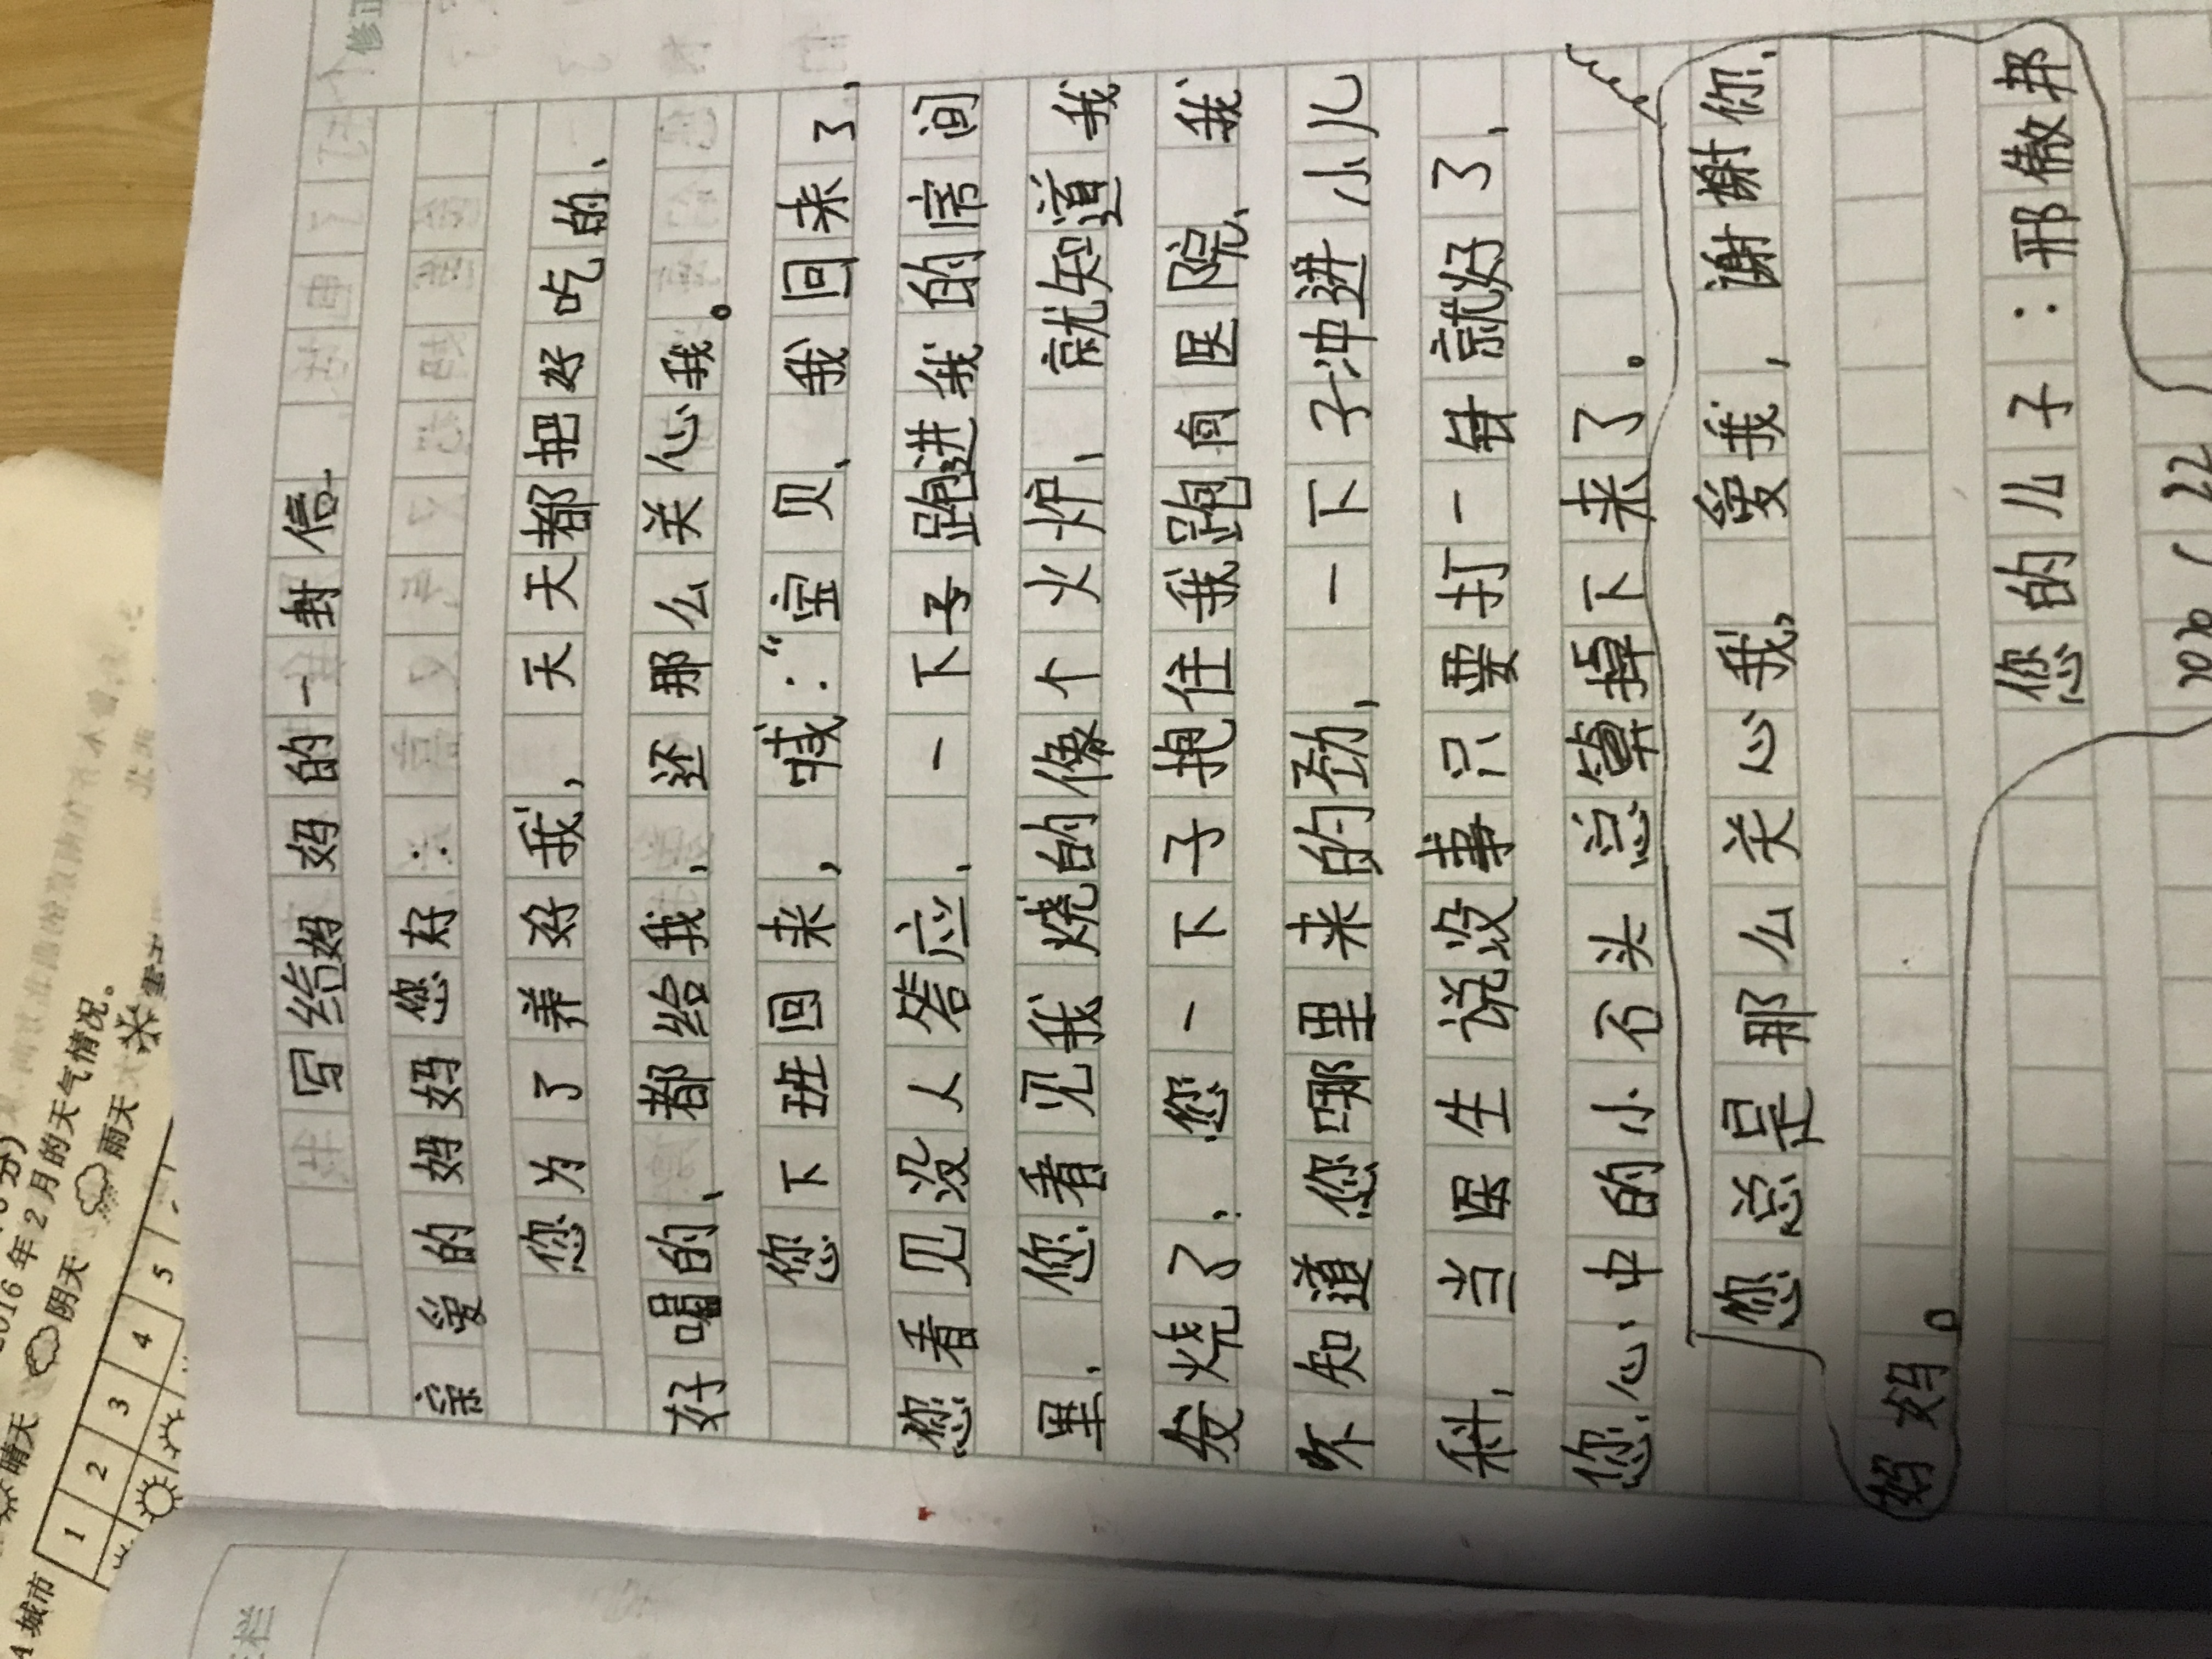 写给妈妈的一封信
亲爱的妈妈您好：
您为了养好我，天天都把好吃的、
好喝的、都给我、还那么关心我。
您下班回来，喊：“宝贝、我回来了、
您看见没人答应、一下子跑进我的房间
里、您看见我烧的像个火炉、就知道我
发烧了，您一下子抱住我跑向医院、我
不知道您哪里来的劲、一下子冲进小儿
科、当医生说没事只要打一针就好了、
您心中的小石头总算掉下来了。
您总是那么关心我，爱我，谢谢你、
妈妈。
您的儿子：邢傲邦
修正
2016年2月的天气情况。
晴天 阴天 雨天
1 2 3 4 5
A城市
栏